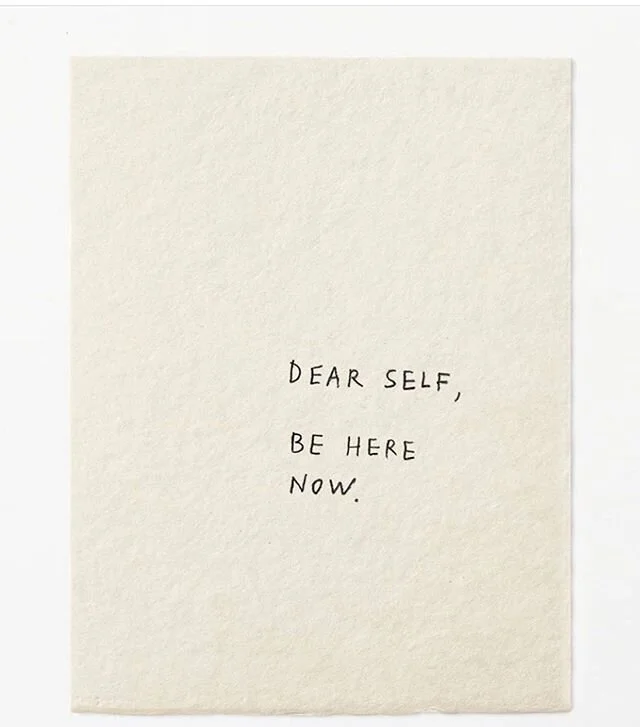 DEAR SELF,
BE HERE
NOW.